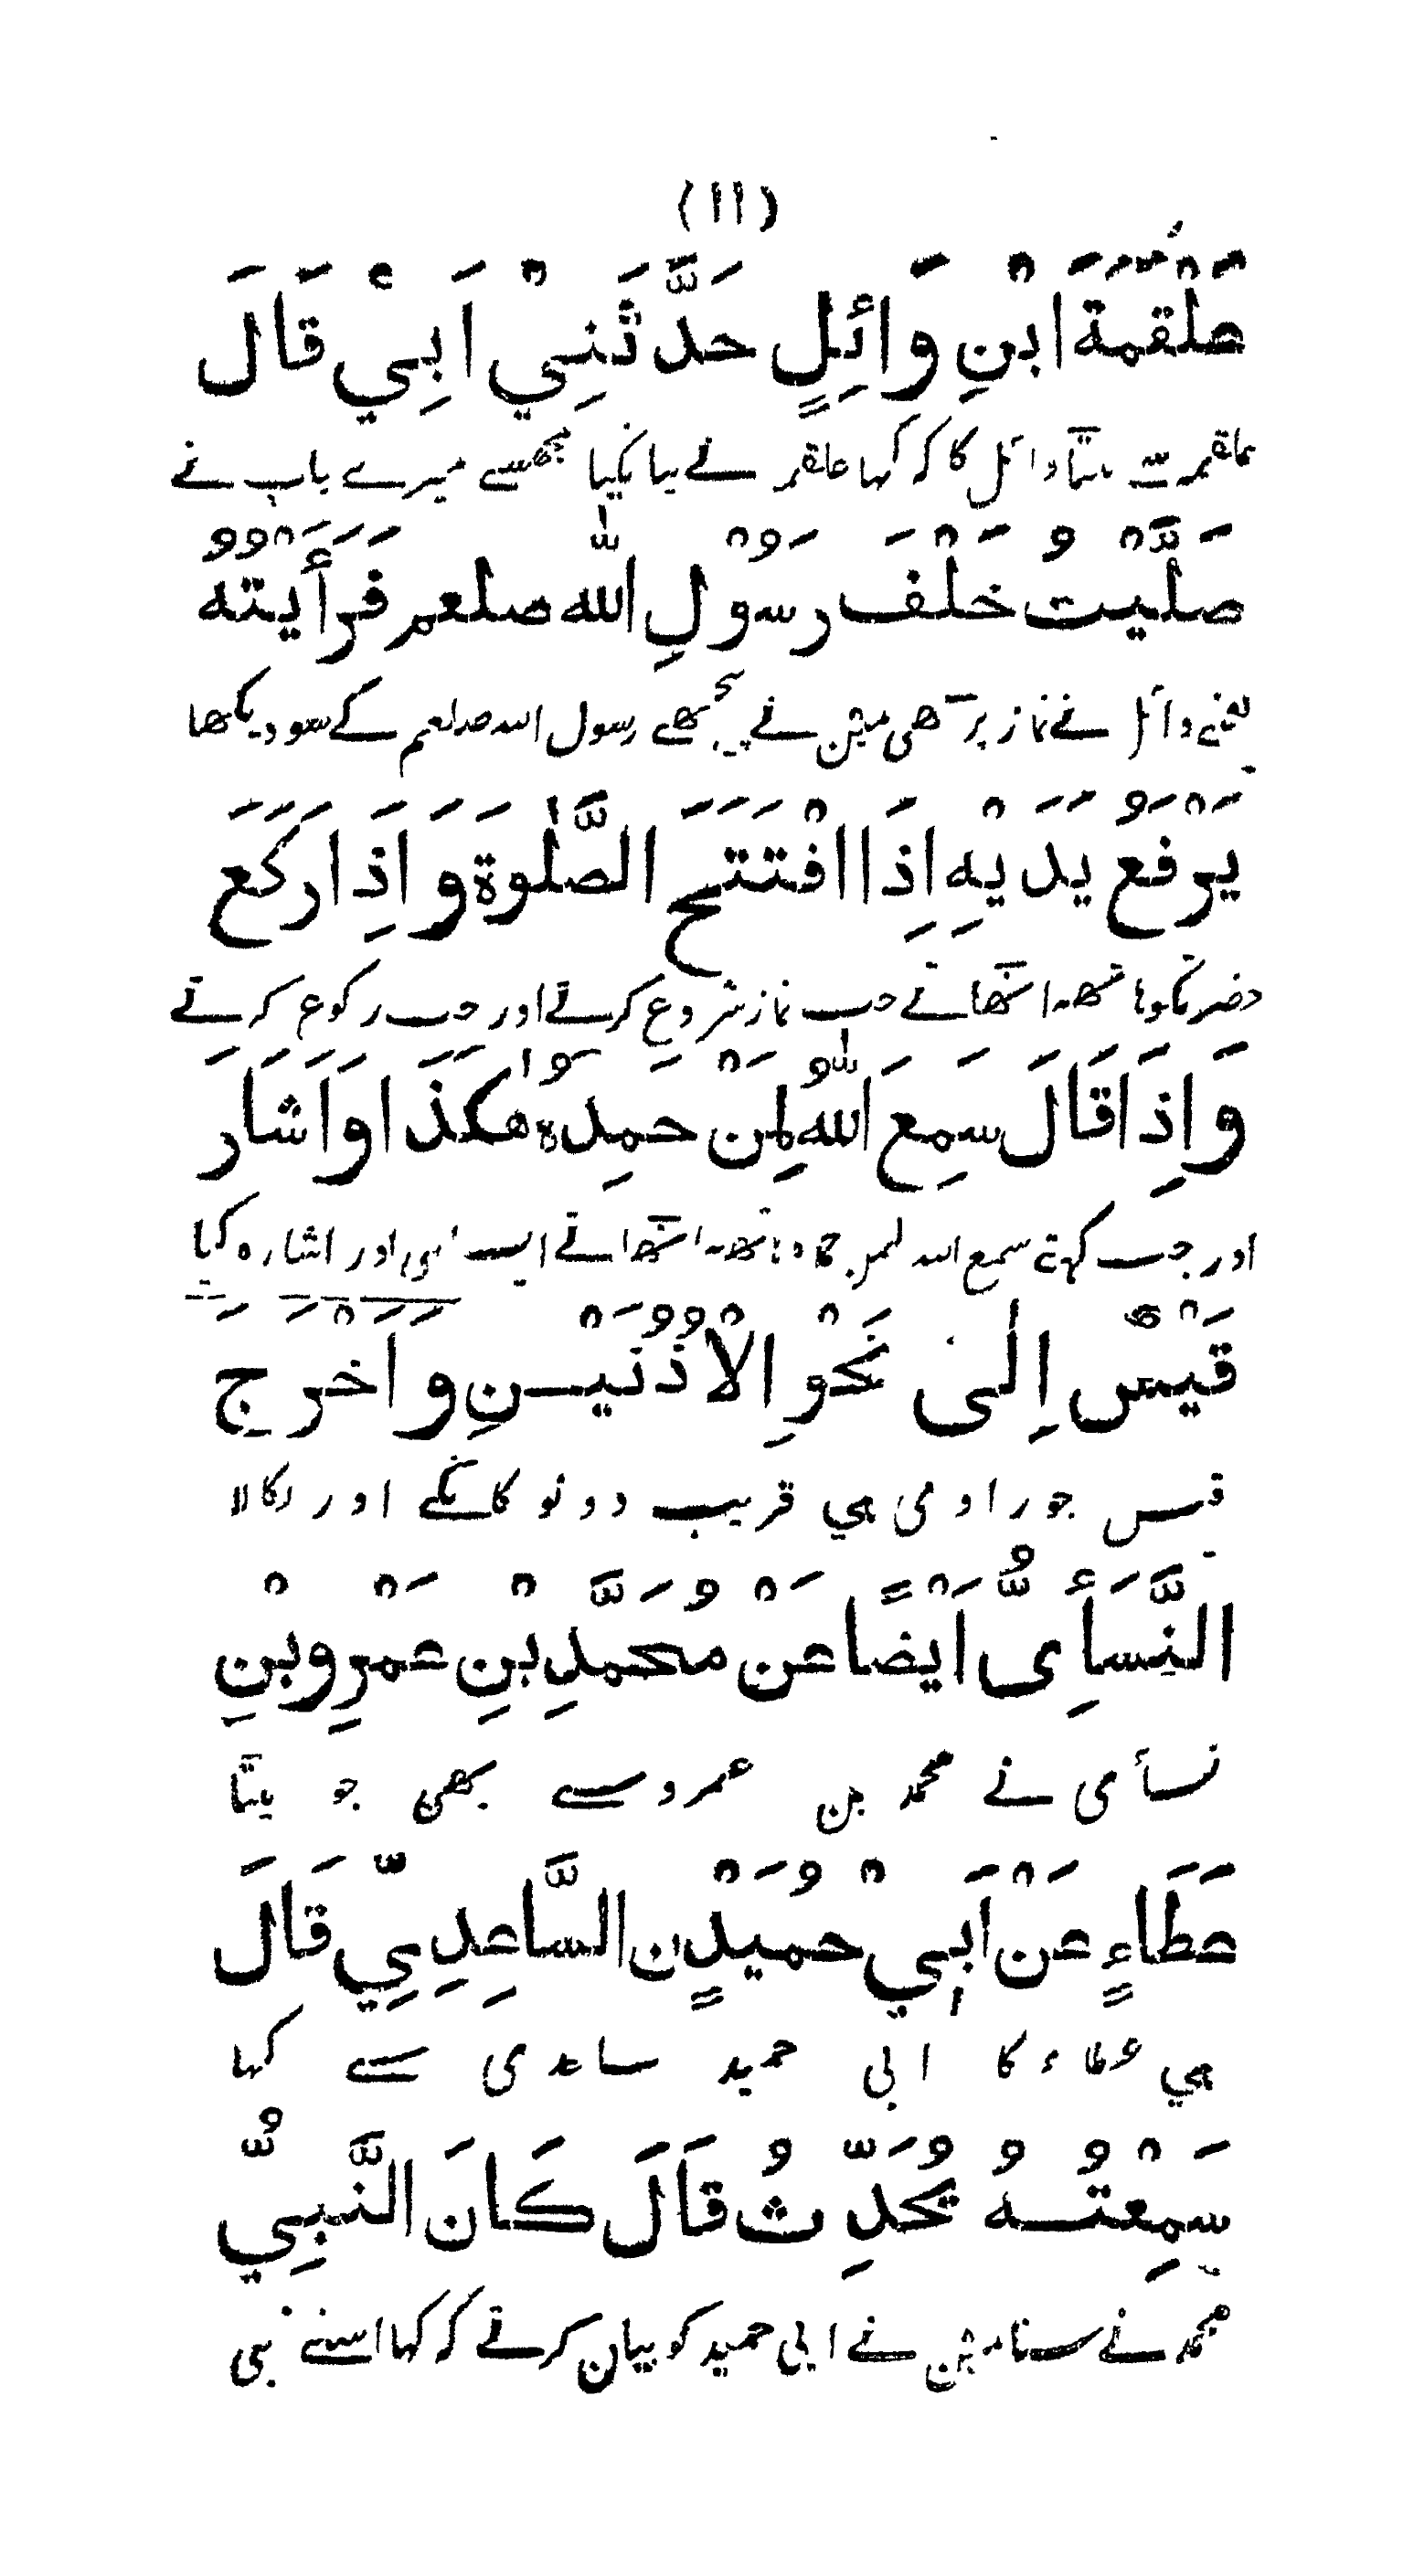 (۱۱)
عَلْقَمَةَ ابْنِ وَائِلٍ حَدَّثَنِيْ اَبِيْ قَالَ
علقمہ سے بیٹا وائل کا کہ کہا علقمہ نے بیانکیا مجھسے میرے باپ نے
صَلَّيْتُ خَلْفَ رَسُوْلِ اللّٰه صلعم فَرَأَيْتُهُ
یعنے وائل نے نماز پڑھی مین نے پیچھے رسول اللہ صلعم کے سو دیکھا
يَرْفَعُ يَدَيْهِ اِذَا افْتَتَحَ الصَّلٰوةَ وَ اِذَا رَكَعَ
حضرتکو ہاتھہ اٹھاتے جب نماز شروع کرتے اور جب رکوع کرتے
وَ اِذَا قَالَ سَمِعَ اللّٰهُ لِمَنْ حَمِدَهُ هٰكَذَا وَ اَشَارَ
اور جب کہتے سمع اللہ لمن حمدہ ہاتھہ اٹھاتے ایسا ہی اور اشارہ کیا
قَيْسٌ اِلٰى نَحْوِ الْاُذُنَيْنِ وَ اَخْرَجَ
قیس جو راوی ہی قریب دونو کانکے اور نکالا
النَّسَأِىُّ اَيْضًا عَنْ مُحَمَّدِ بْنِ عَمْرِو بْنِ
نسأی نے محمد بن عمرو سے بھی جو بیٹا
عَطَاءٍ عَنْ اَبِيْ حُمَيْدٍ ن السَّاعِدِيِّ قَالَ
ہی عطاء کا ابی حمید ساعدی سے کہا
سَمِعْتُهُ يُحَدِّثُ قَالَ كَانَ النَّبِيُّ
محمد نے سنا مین نے ابی حمید کو بیان کرتے کہ کہا اسنے نبی